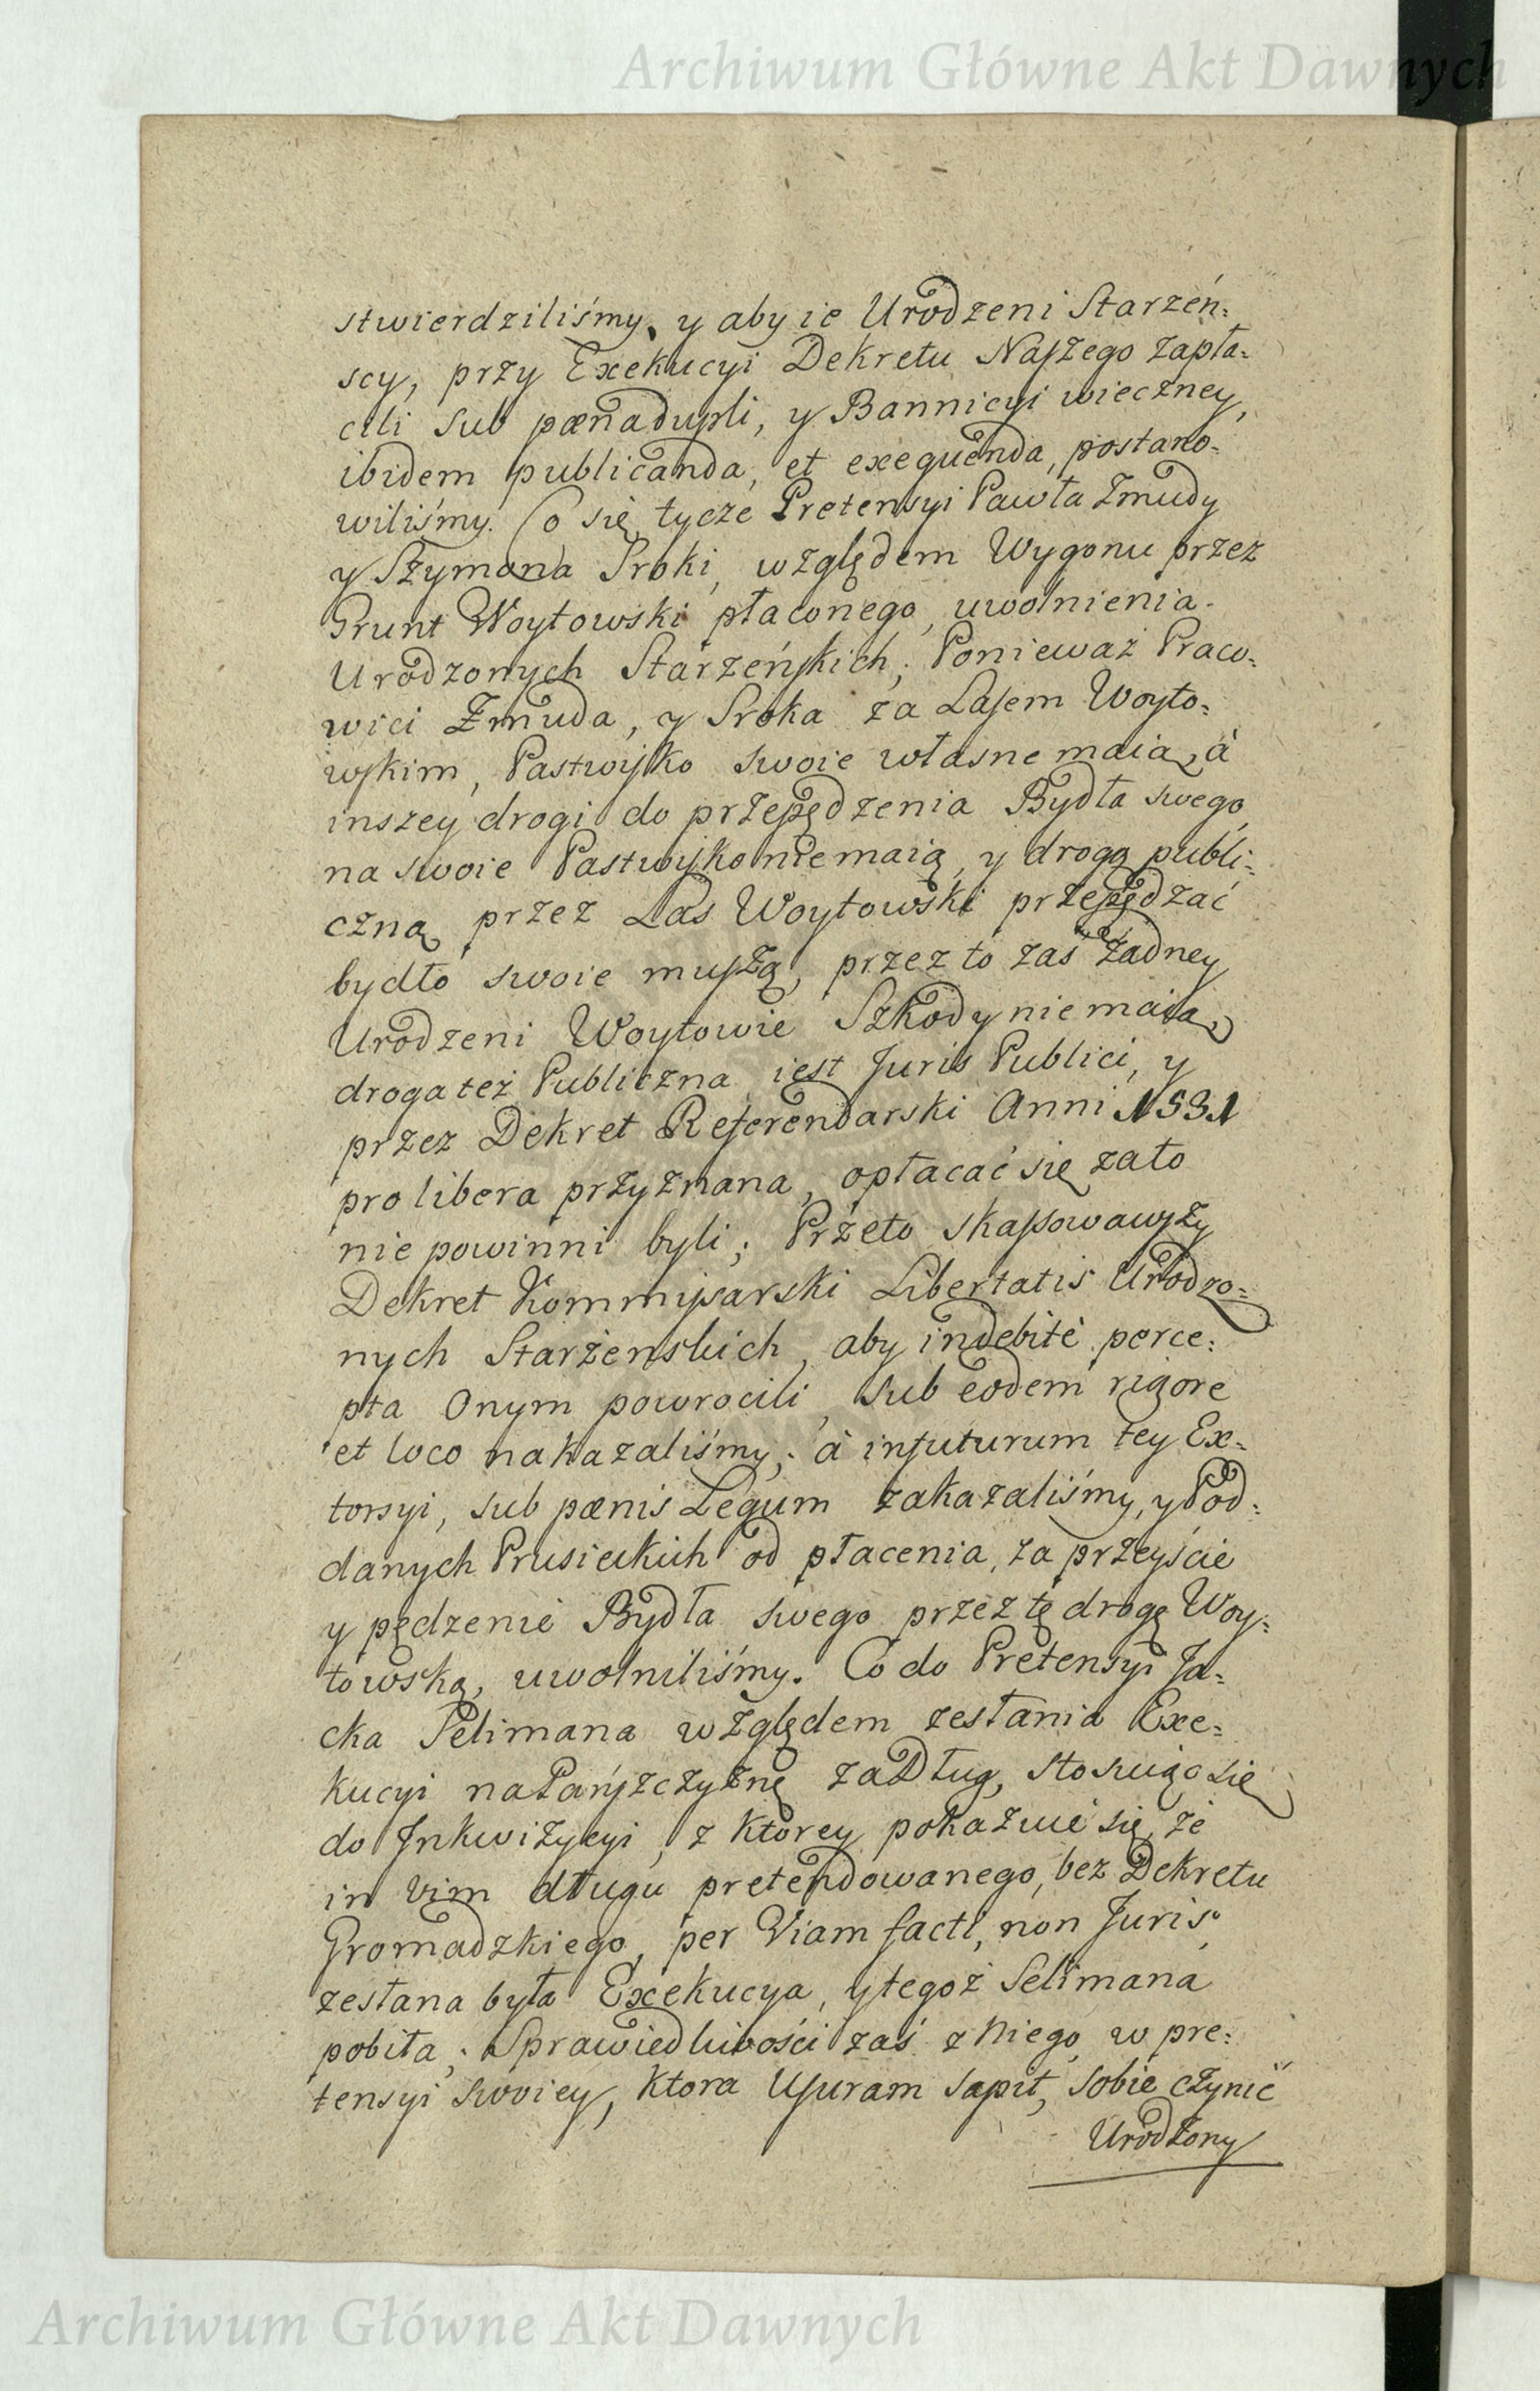 Archiwum Główne Akt Dawnych
stwierdziliśmy, y aby ie Urodzeni Starzeń=
scy, przy Exekucyi Dekretu Naszego zapła=
cili sub pœna dupli, y Bannicyi wieczney,
ibidem publicanda, et exequenda, postano=
wiliśmy. Co się tycze Pretensyi Pawła Zmudy
y Szymona Sroki, względem Wygonu przez
Grunt Woytowski płaconego, uwolnienia
Urodzonych Starzeńskich; Ponieważ Praco=
wici Zmuda, y Sroka za Lasem Woyto=
wskim, Pastwisko swoie własne maią, à
inszey drogi do przepędzenia Bydła swego
na swoie Pastwisko nie maią, y drogą publi=
czną przez Las Woytowski przepędzać
bydło swoie muszą, przez to zaś żadney
Urodzeni Woytowie Szkody nie maią,
droga też Publiczna iest Juris Publici, y
przez Dekret Referendarski Anni 1531
pro libera przyznana, opłacać się za to
nie powinni byli; Przeto skassowawszy
Dekret Kommissarski Libertatis Urodzo=
nych Starzenskich, aby indebitè perce=
pta onym powrocili, sub eodem rigore
et loco nakazaliśmy; à in futurum tey Ex=
torsyi, sub pœnis Legum zakazaliśmy, y Pod=
danych Prusieckich od płacenia, za przeyście
y pędzenie Bydła swego przez tę drogę Woy=
towską, uwolniliśmy. Co do Pretensyi Ja=
cka Selimana względem zesłania Exe=
kucyi na Pańszczyznę za Dług, stosuiąc się
do Inkwizycyi, z ktorey pokazuie się, że
in vim długu pretendowanego, bez Dekretu
Gromadzkiego, per Viam facti, non Juris,
zesłana była Exekucya, y tegoż Selimana
pobiła; Sprawiedliwości zaś z niego w pre=
tensyi swoiey, ktora Usuram sapit, sobie czynić
Urodzony
Archiwum Główne Akt Dawnych